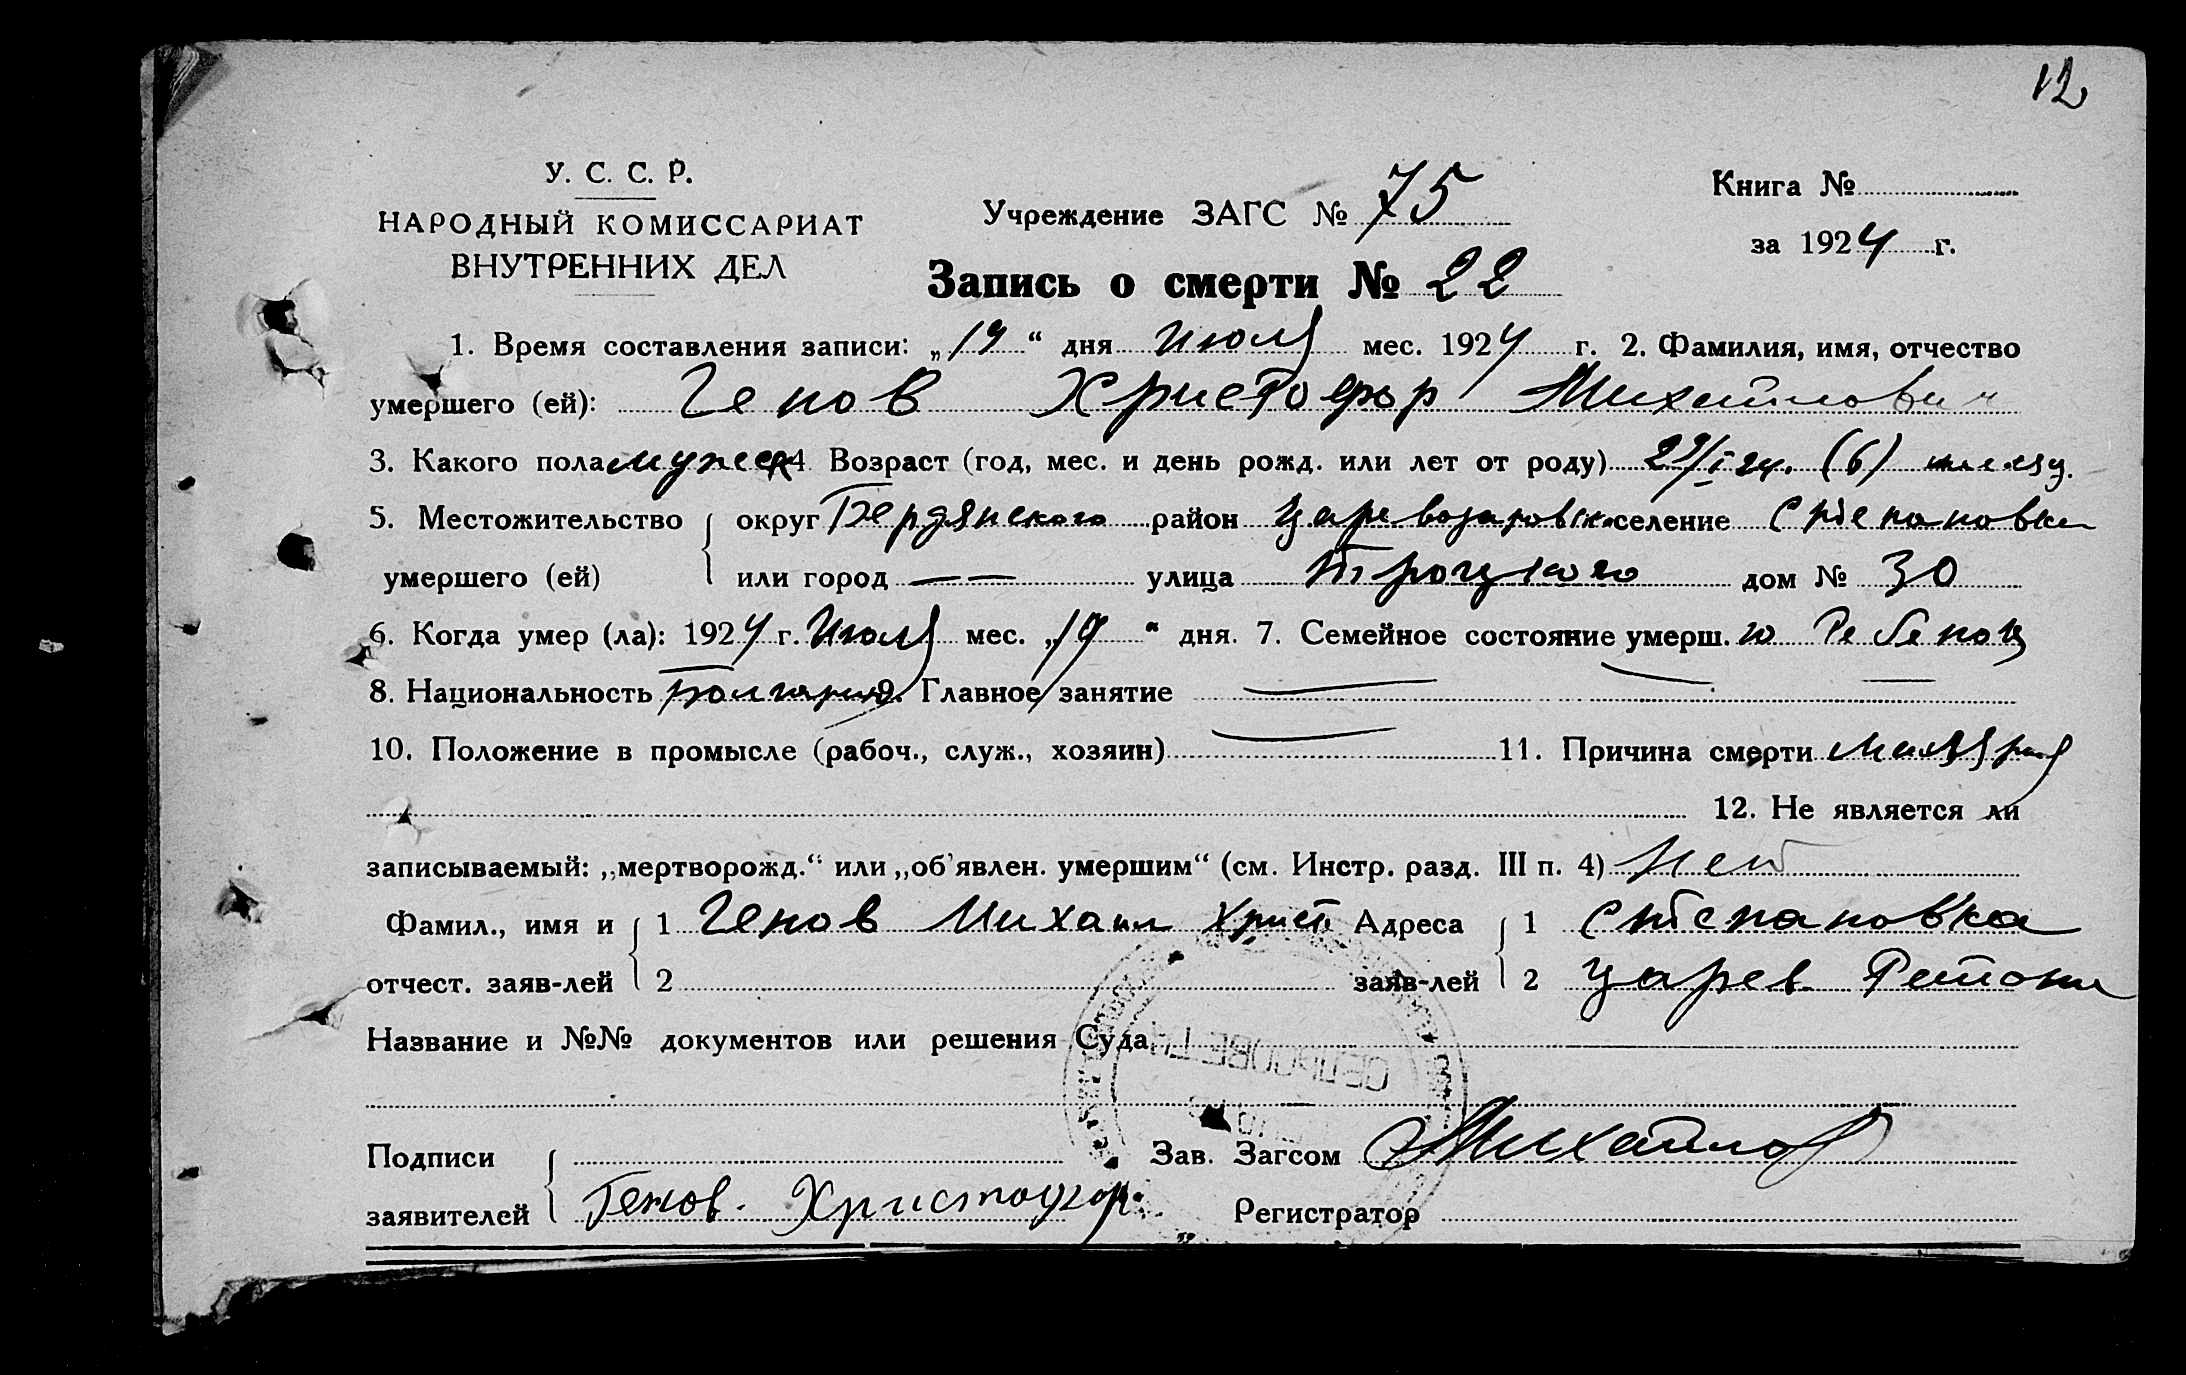 12
У. С. С. Р.
НАРОДНЫЙ КОМИССАРИАТ
ВНУТРЕННИХ ДЕЛ
Учреждение ЗАГС № 75
Книга №
за 1924 г.
Запись о смерти № 22
1. Время составления записи: „19“ дня Июля мес. 1924 г. 2. Фамилия, имя, отчество
умершего (ей): Генов Христофор Михайлович
3. Какого пола мужск 4 Возраст (год, мес. и день рожд. или лет от роду) (6)
5. Местожительство округ Бердянского район селение Степановка
умершего (ей) или город —— улица Троцкого дом № 30
6. Когда умер (ла): 1924 г. Июля мес. „19“ дня. 7. Семейное состояние умерш. Ребенок
8. Национальность 9. Главное занятие —
10. Положение в промысле (рабоч., служ., хозяин) — 11. Причина смерти Малярия
12. Не является ли
записываемый: „мертворожд.“ или „об'явлен. умершим“ (см. Инстр. разд. III п. 4) Нет
Фамил., имя и 1 Генов Михаил Христ Адреса 1 Степановка
отчест. заяв-лей 2 заяв-лей 2 Царев. Району
Название и №№ документов или решения Суда
СЕЛЬСОВЕТ
Подписи Зав. Загсом Михайлов
заявителей Генов. Христофор. Регистратор